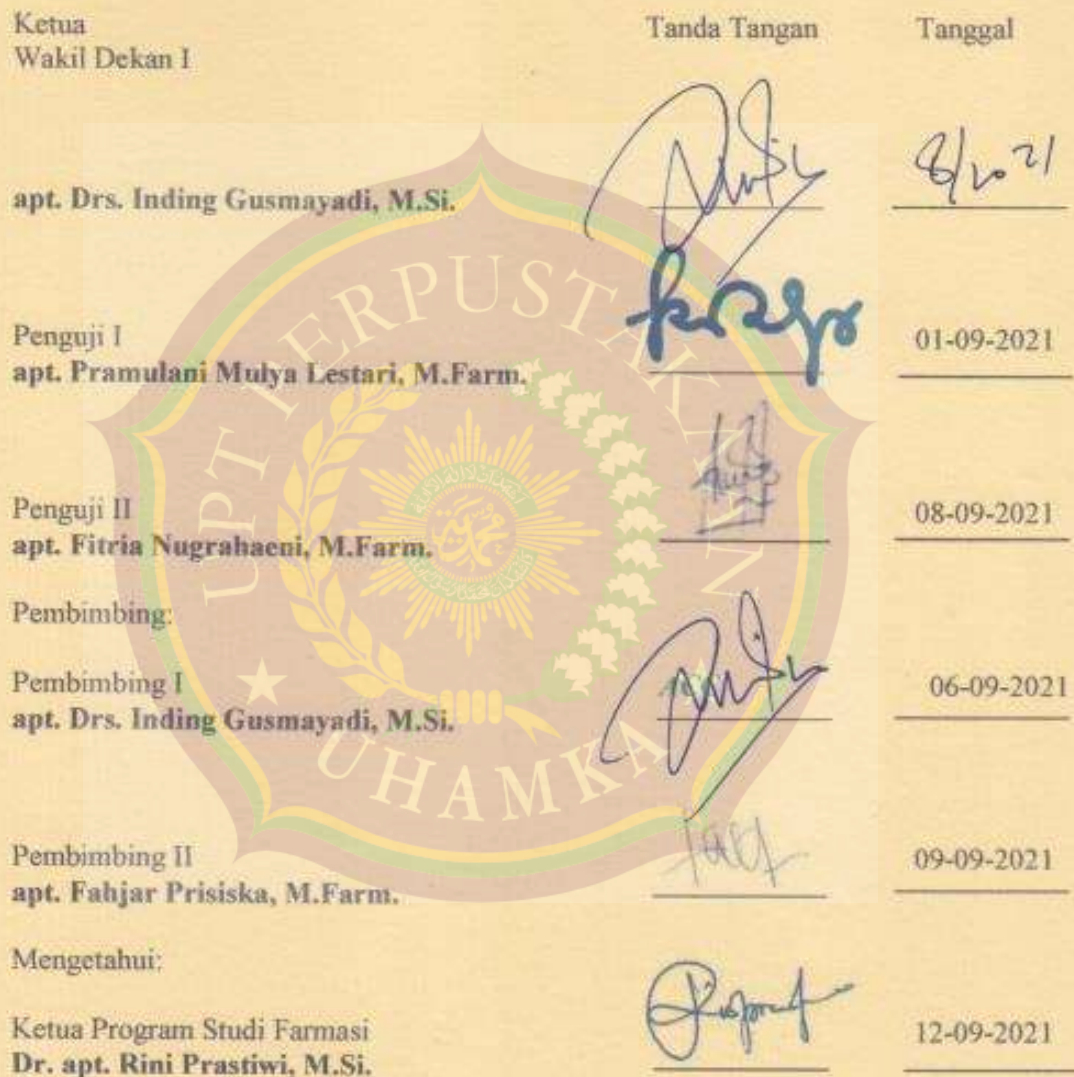 Ketua Tanda Tangan Tanggal
Wakil Dekan I
apt. Drs. Inding Gusmayadi, M.Si. 8/10 21
Penguji I
apt. Pramulani Mulya Lestari, M.Farm. 01-09-2021
Penguji II
apt. Fitria Nugrahaeni, M.Farm. 08-09-2021
Pembimbing:
Pembimbing I
apt. Drs. Inding Gusmayadi, M.Si. 06-09-2021
Pembimbing II
apt. Fahjar Prisiska, M.Farm. 09-09-2021
Mengetahui:
Ketua Program Studi Farmasi
Dr. apt. Rini Prastiwi, M.Si. 12-09-2021
UPT PERPUSTAKAAN
UHAMKA